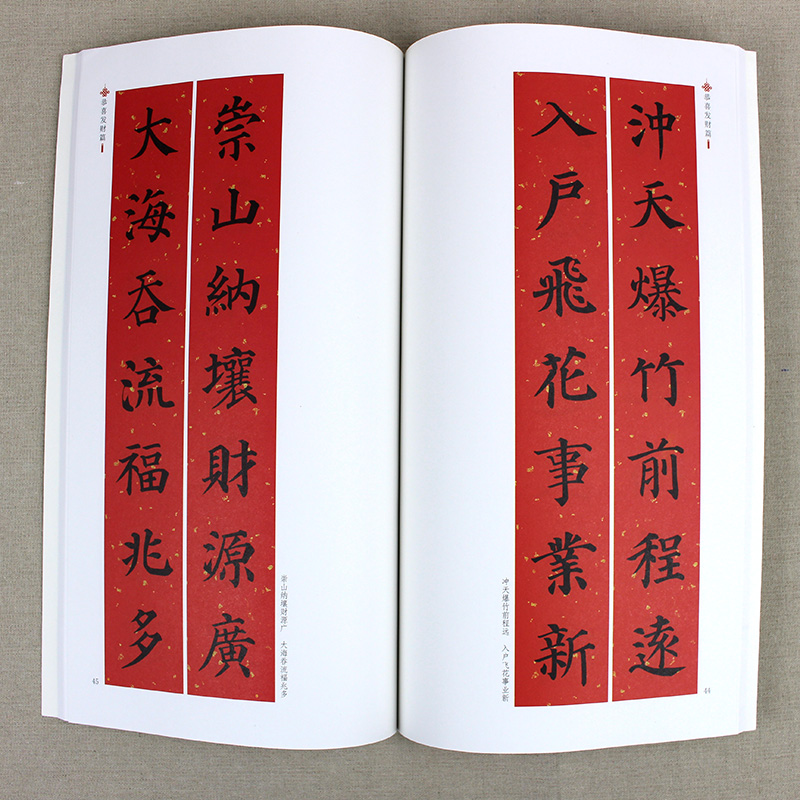 恭喜发财篇
沖天爆竹前程遠
入戶飛花事業新
冲天爆竹前程远 入户飞花事业新
44
崇山納壤財源廣
大海吞流福兆多
崇山纳壤财源广 大海吞流福兆多
恭喜发财篇
45